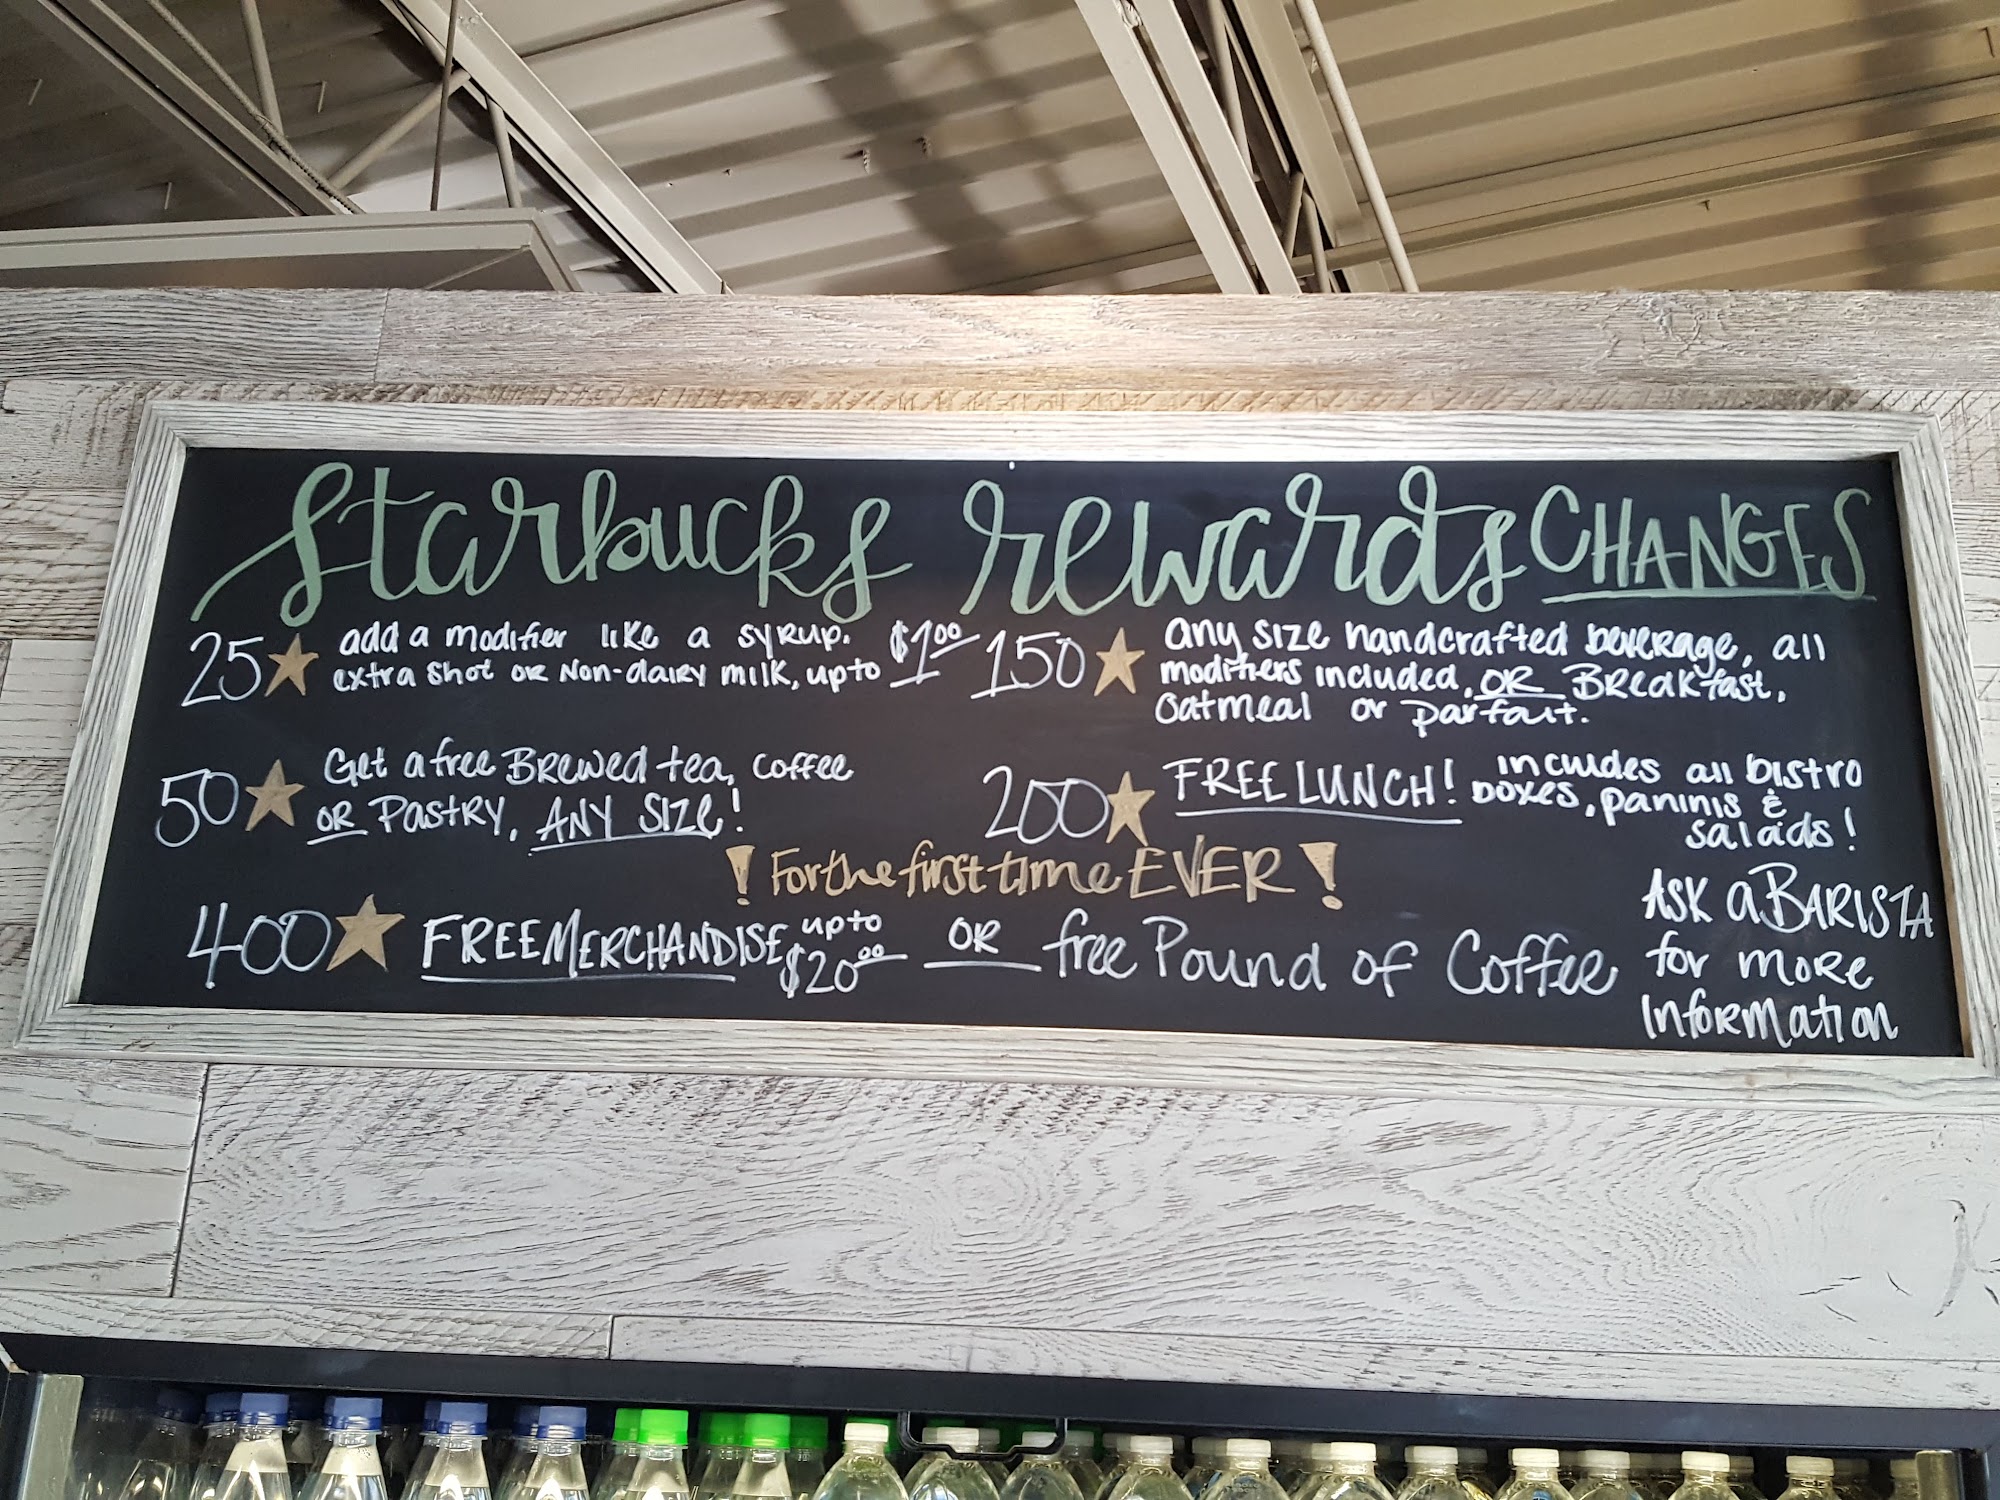 Starbucks rewards CHANGES
25 add a modifier like a syrup.
extra shot OR Non-dairy milk, up to $1.00
50 Get a free Brewed tea, coffee
OR Pastry, ANY SIZE!
150 any size handcrafted beverage, all
modifiers included, OR Breakfast,
Oatmeal or parfait.
200 FREE LUNCH! includes all bistro
boxes, paninis &
salads!
! For the first time EVER!
400 FREE MERCHANDISE, up to
$20.00 OR free Pound of Coffee
ASK a BARISTA
for more
Information